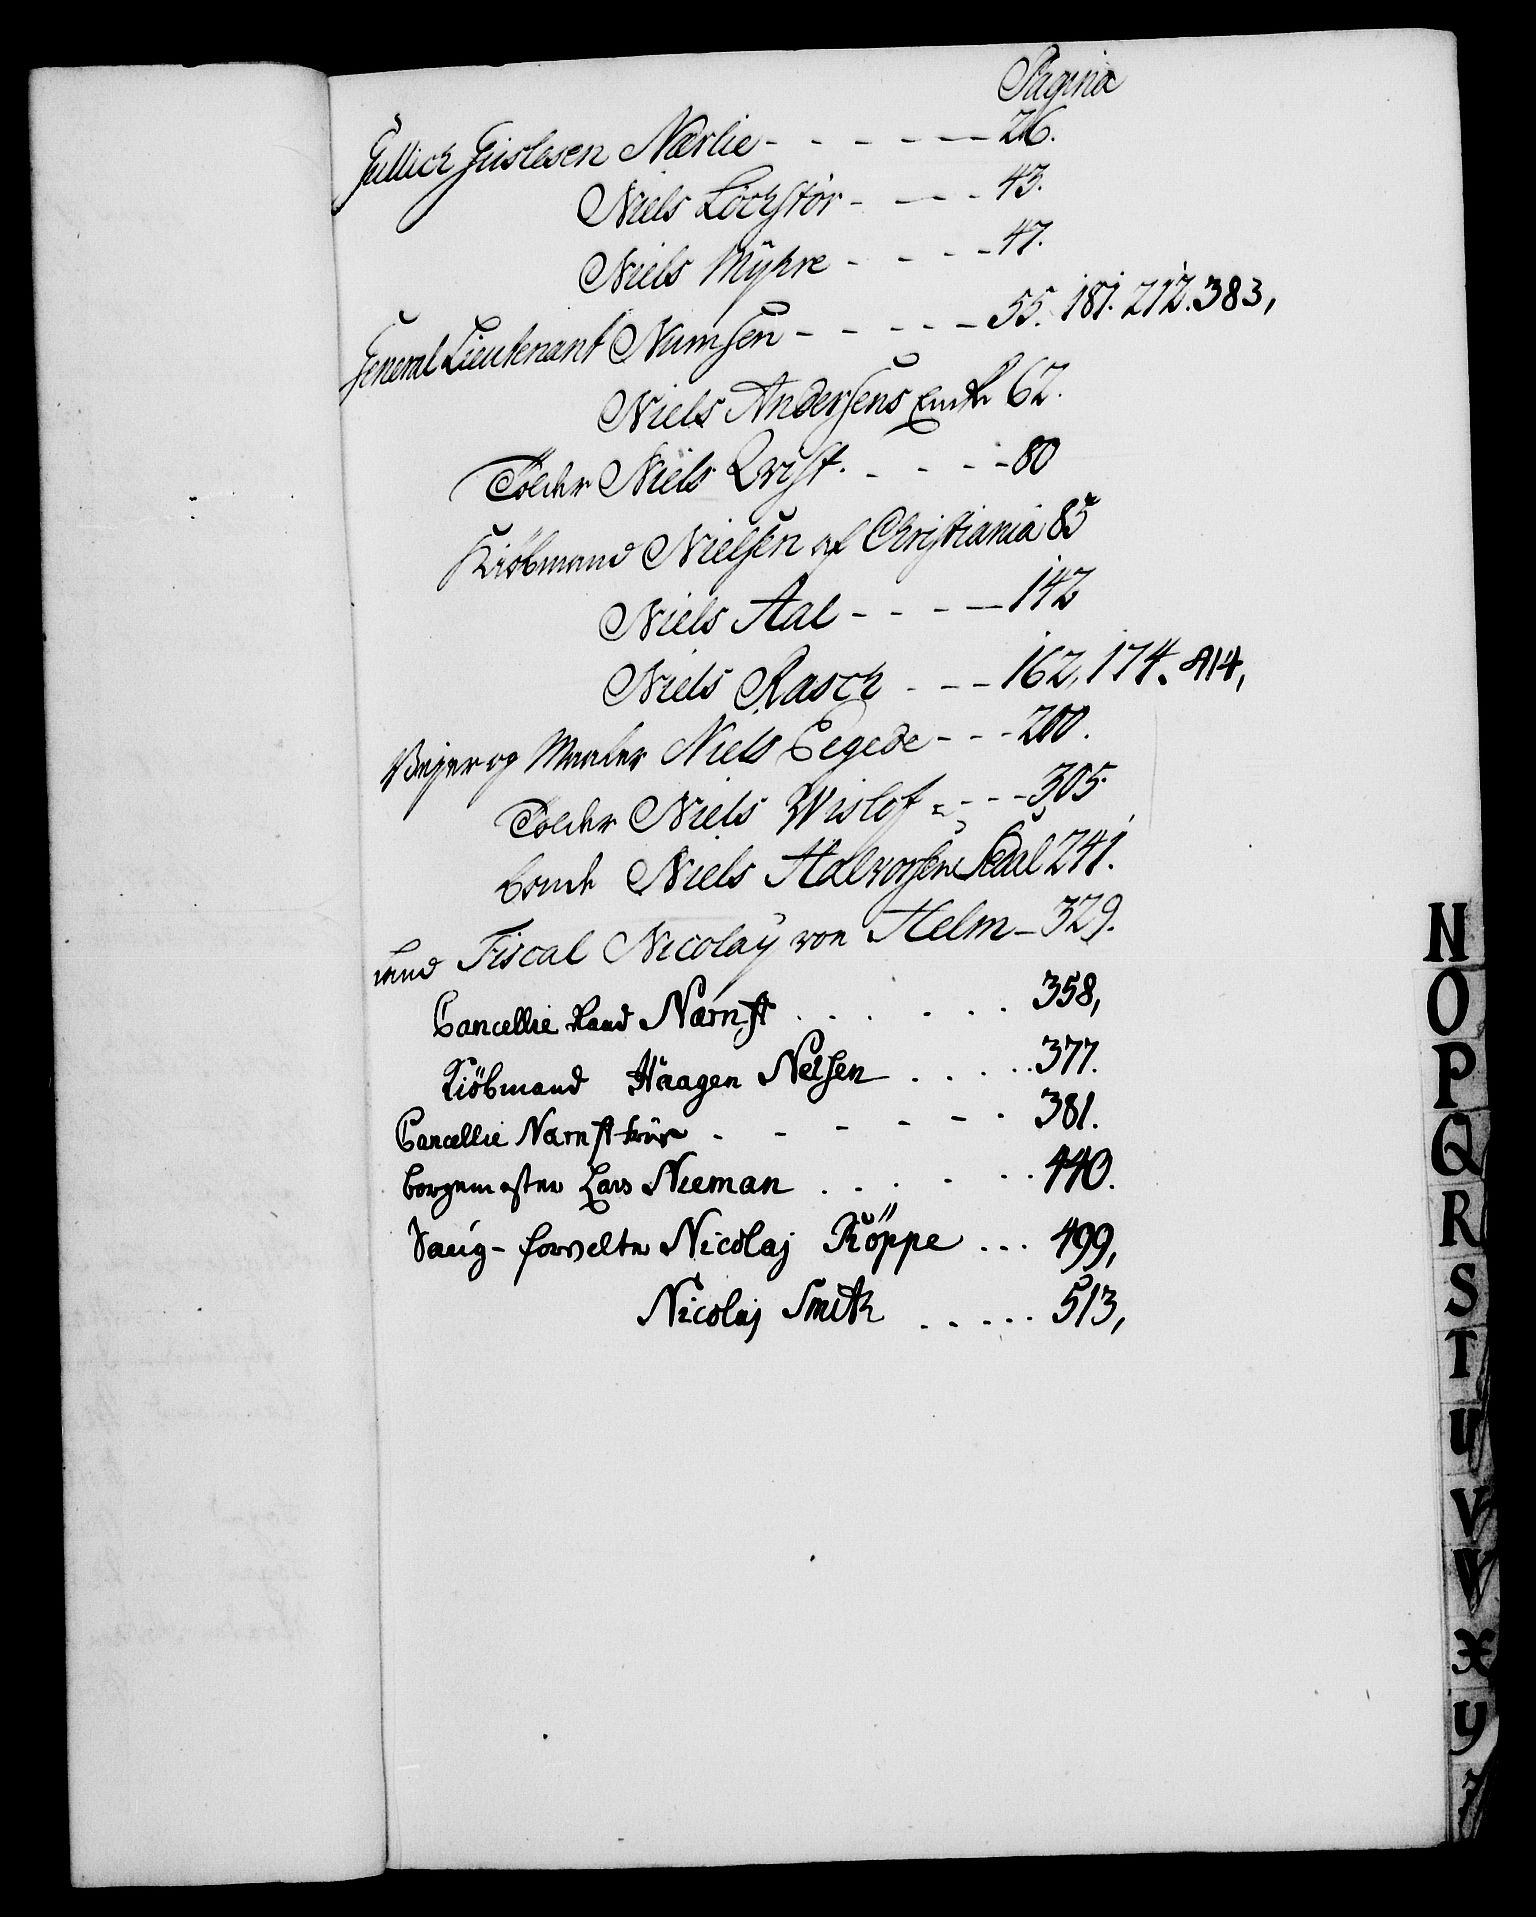 Pagina
Gullich Gislesen Nærlie - - - - - - 26.
Niels Lochstør - - - - 43.
Niels Myhre - - - - 47.
General Lieutenant Numsen - - - - - 55. 181. 212. 383,
Niels Andersens Enke 62.
Tolder Niels Qvist. - - - - 80
Kiøbmand Nielsen af Christiania 85
Niels Aal - - - - 142
Niels Rasch - - - 162, 174. 414,
Vejer og Maaler Niels Egede - - - 200.
Tolder Niels Wislof - - - 305.
bonde Niels Halvorsen 241.
Land Fiscal Nicolaÿ von Helm - 329.
Cancellie Raad Nærnst . . . . . . 358,
Kiöbmand Haagen Nelsen . . . . . 377.
Cancellie Nærnst - - - - - . 381.
borgemester Lars Nieman . . . . . . 440.
Nicolaj Köppe ... 499,
Nicolaj Smith ..... 513,
N
O
P
Q
R
S
T
U
V
W
X
Y
Z